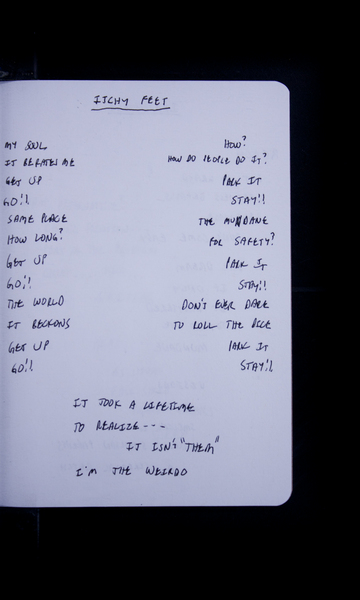 ITCHY FEET
MY SOUL
IT BERATES ME
GET UP
GO!!
SAME PLACE
HOW LONG?
GET UP
GO!!
THE WORLD
IT BECKONS
GET UP
GO!!
HOW?
HOW DO PEOPLE DO IT?
PARK IT
STAY!!
THE MUNDANE
FOR SAFETY?
PARK IT
STAY!!
DON'T EVER DARE
TO ROLL THE DICE
PARK IT
STAY!!
IT TOOK A LIFETIME
TO REALIZE---
IT ISN'T "THEM"
I'M THE WEIRDO